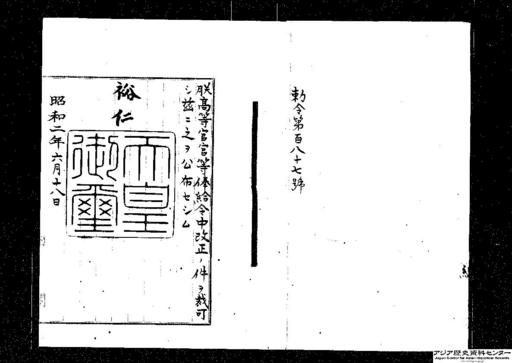 勅令第百八十七號
朕高等官官等俸給令中改正ノ件ヲ裁可
シ茲ニ之ヲ公布セシム
裕仁
天皇
御璽
昭和二年六月十八日
アジア歴史資料センター
Japan Center for Asian Historical Records